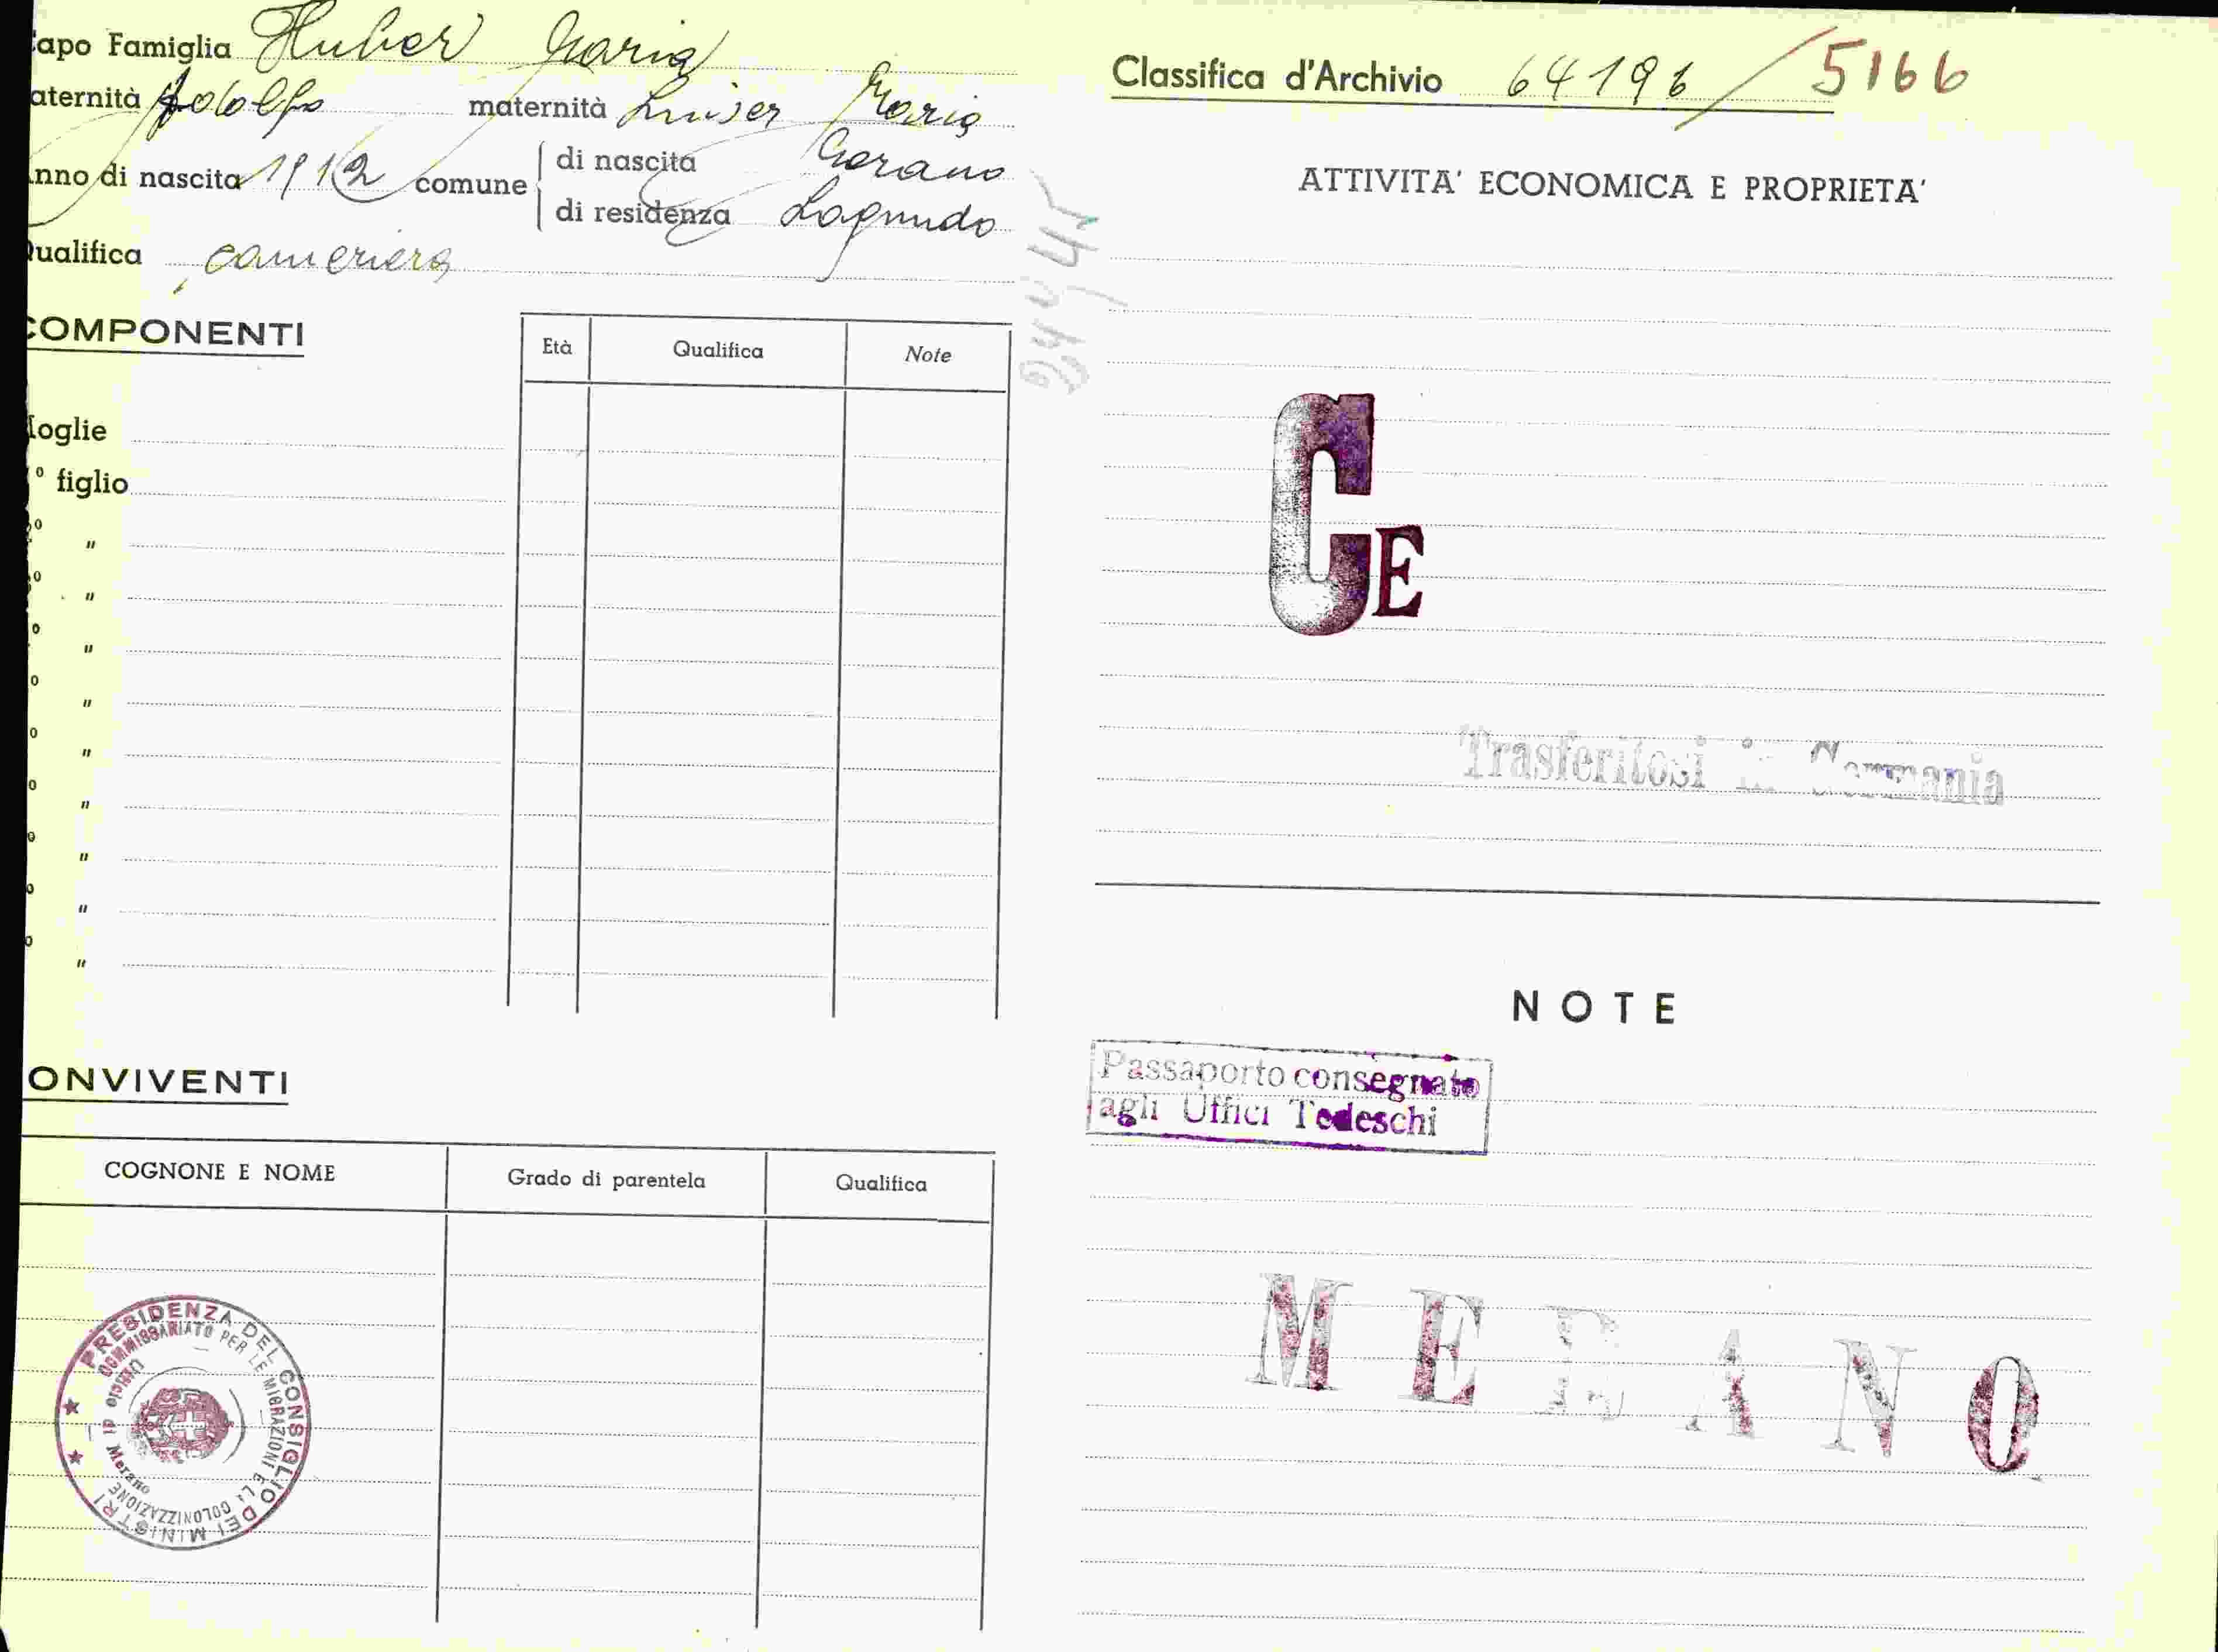 Capo Famiglia Huber Maria
aternità Adolfo maternità Luiser Maria
nno di nascita 1912 comune di nascita Merano
di residenza Lagundo
Qualifica cameriera
COMPONENTI
Età Qualifica Note
Moglie
° figlio
° "
° "
° "
° "
° "
° "
° "
° "
° "
ONVIVENTI
COGNONE E NOME Grado di parentela Qualifica
PRESIDENZA DEL CONSIGLIO DEI MINISTRI
COMMISSARIATO PER LE MIGRAZIONI E LA COLONIZZAZIONE
Ufficio di Merano
Classifica d'Archivio 64196/5166
ATTIVITA' ECONOMICA E PROPRIETA'
CE
Trasferitosi in Germania
NOTE
Passaporto consegnato
agli Uffici Tedeschi
MERANO